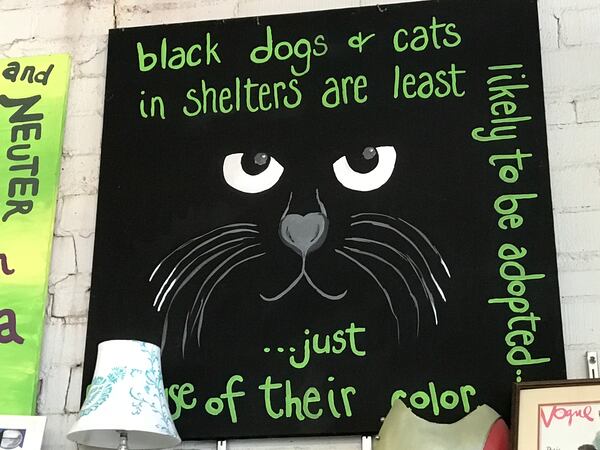 black dogs & cats
in shelters are least
likely to be adopted...
...just
se of their color
and
NEUTER
a
Vogue